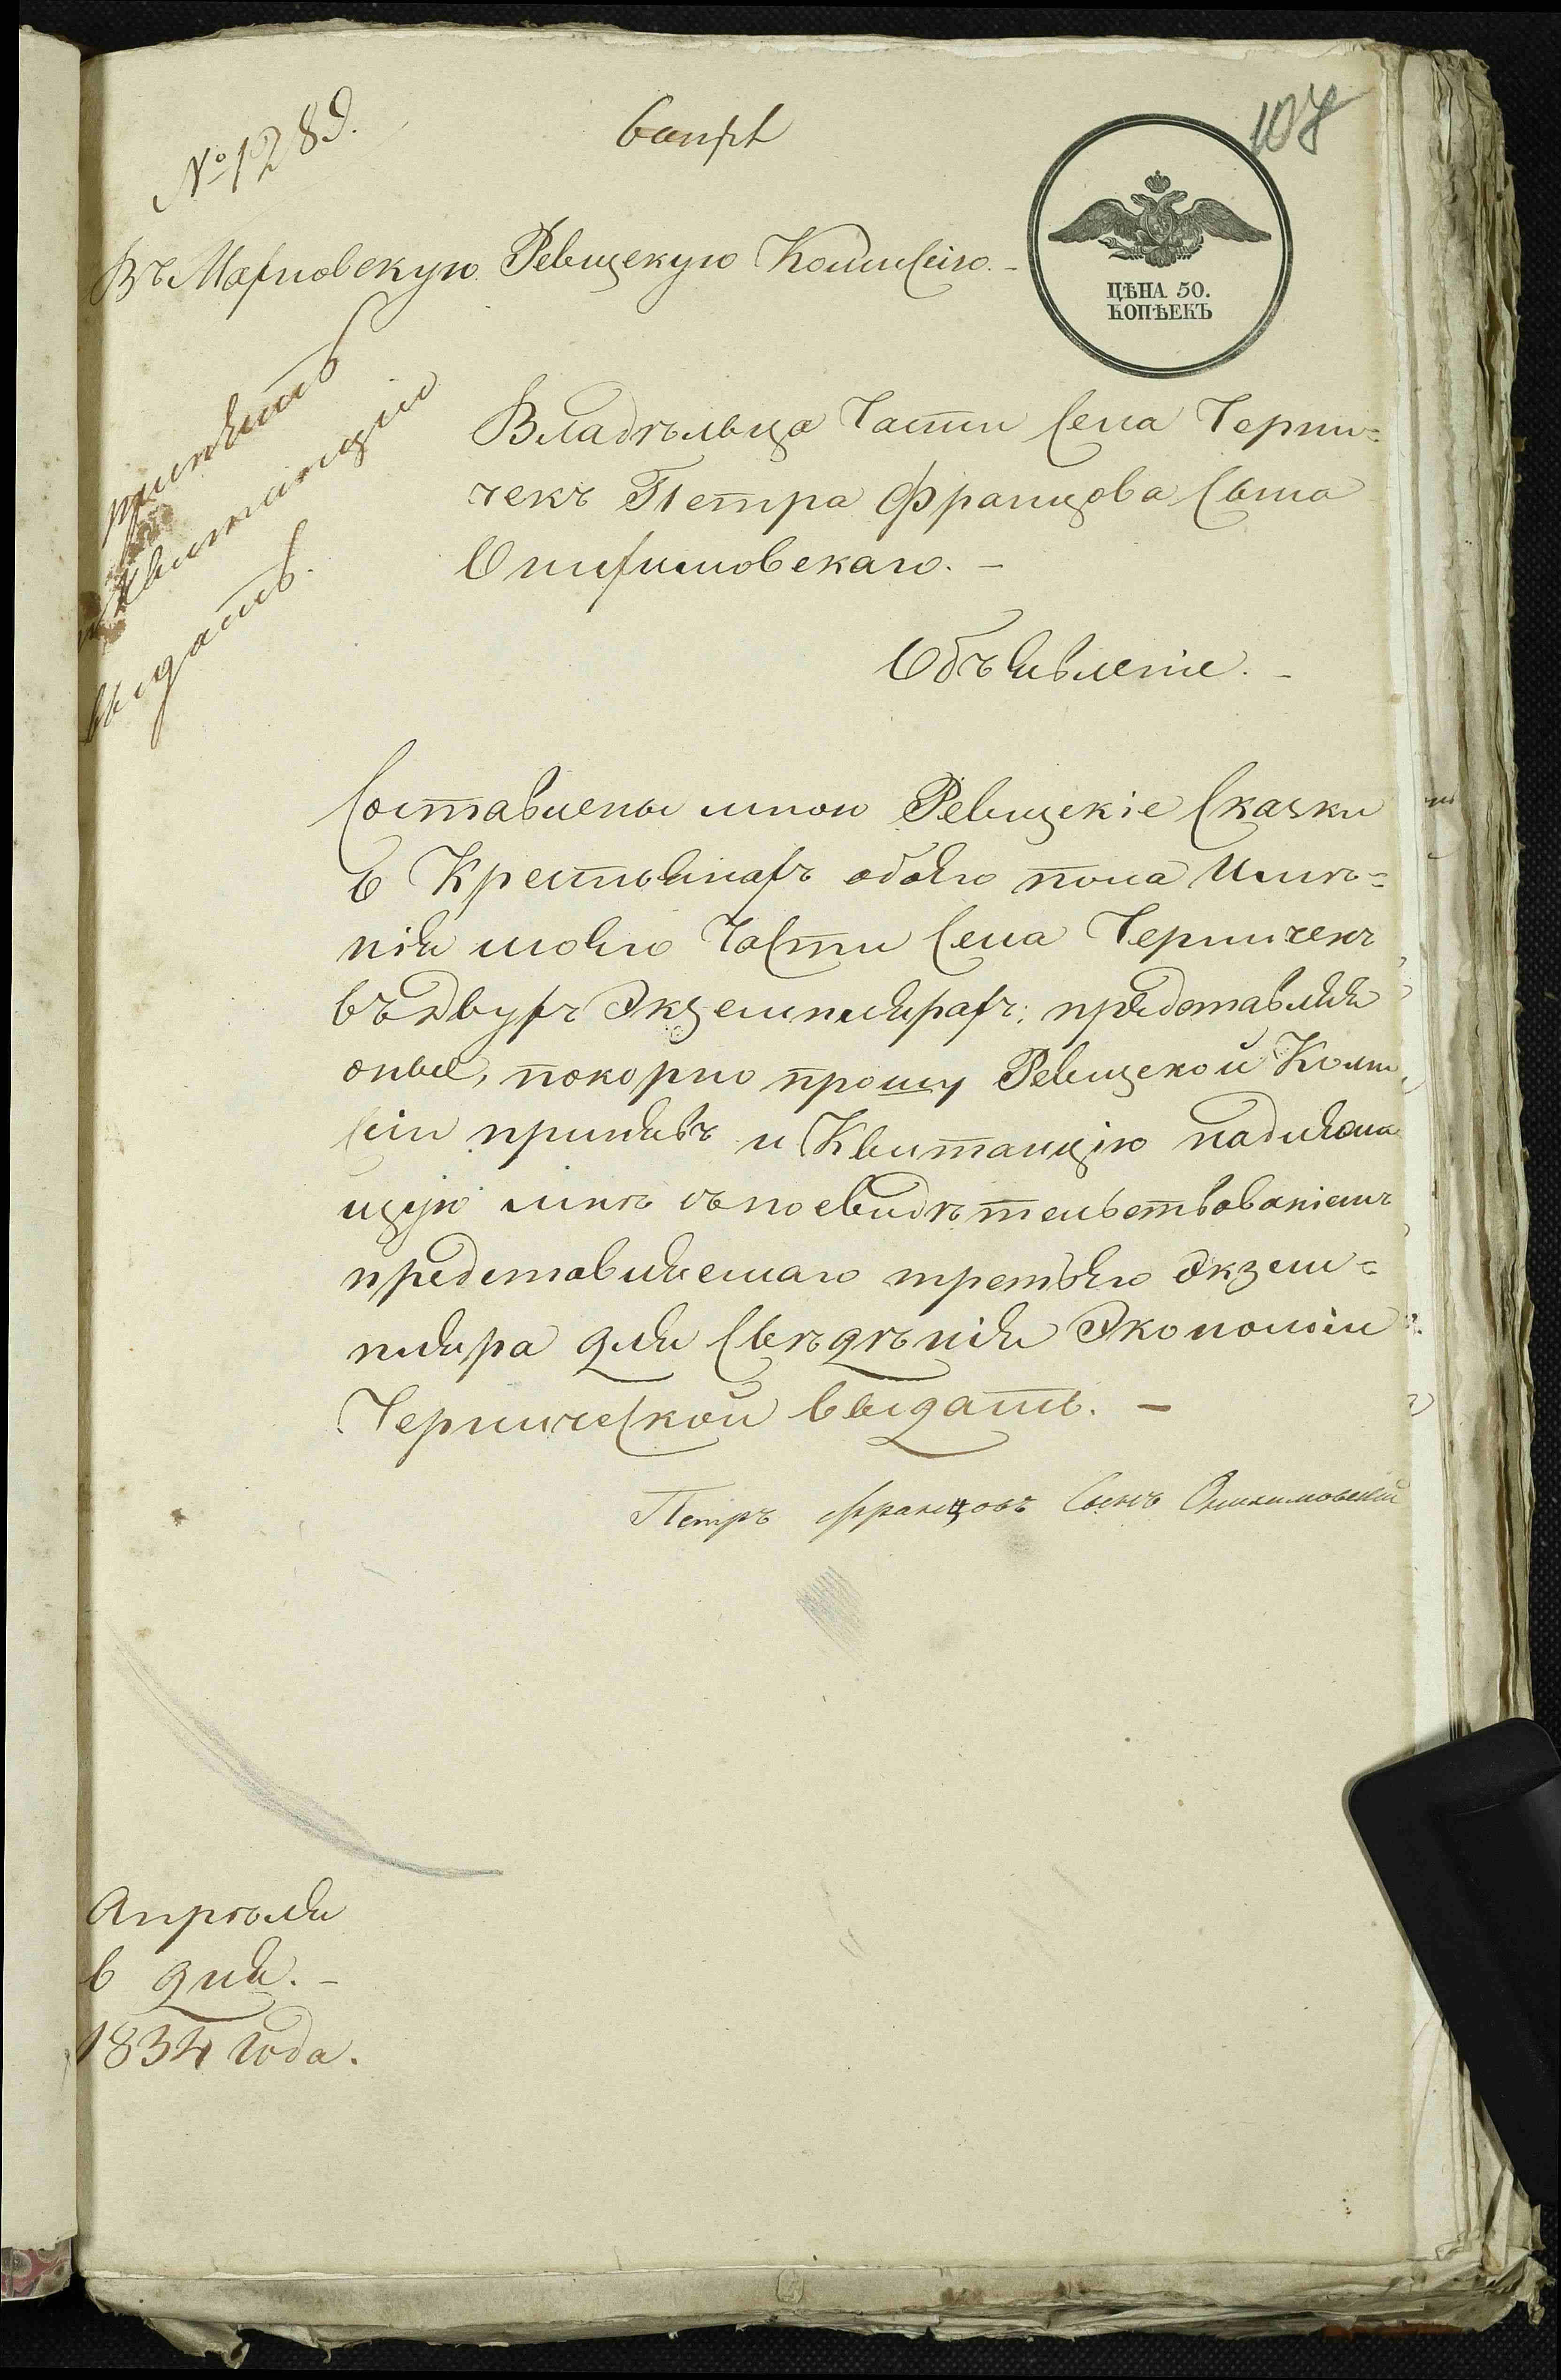 №1289.
6 апрѣ
107
Въ Махновскую Ревизскую Коммисію. -
ЦѢНА 50.
КОПѢЕКЪ
принять
и квитанцію
выдать.
Владѣльца Части Села Черни=
чекъ Петра Францова Сына
Опихимовскаго. -
Объявленіе. -
Составлены мною Ревизскіе Сказки
о Крестьянахъ обоего пола Имѣ=
нія моего Части Села Черничекъ
въ двухъ Экземплярахъ; представляя
оные, покорно прошу Ревизской Комми
сіи принявъ и Квитанцію надлежа
щую мнѣ съ посвидѣтельствованіемъ
представляемаго третьего экзем=
пляра для Свѣдѣнія Экономіи
Чернической выдать. -
Петръ Францовъ Сынъ Опихимовскій
Апрѣля
6 дня. -
1834 года.